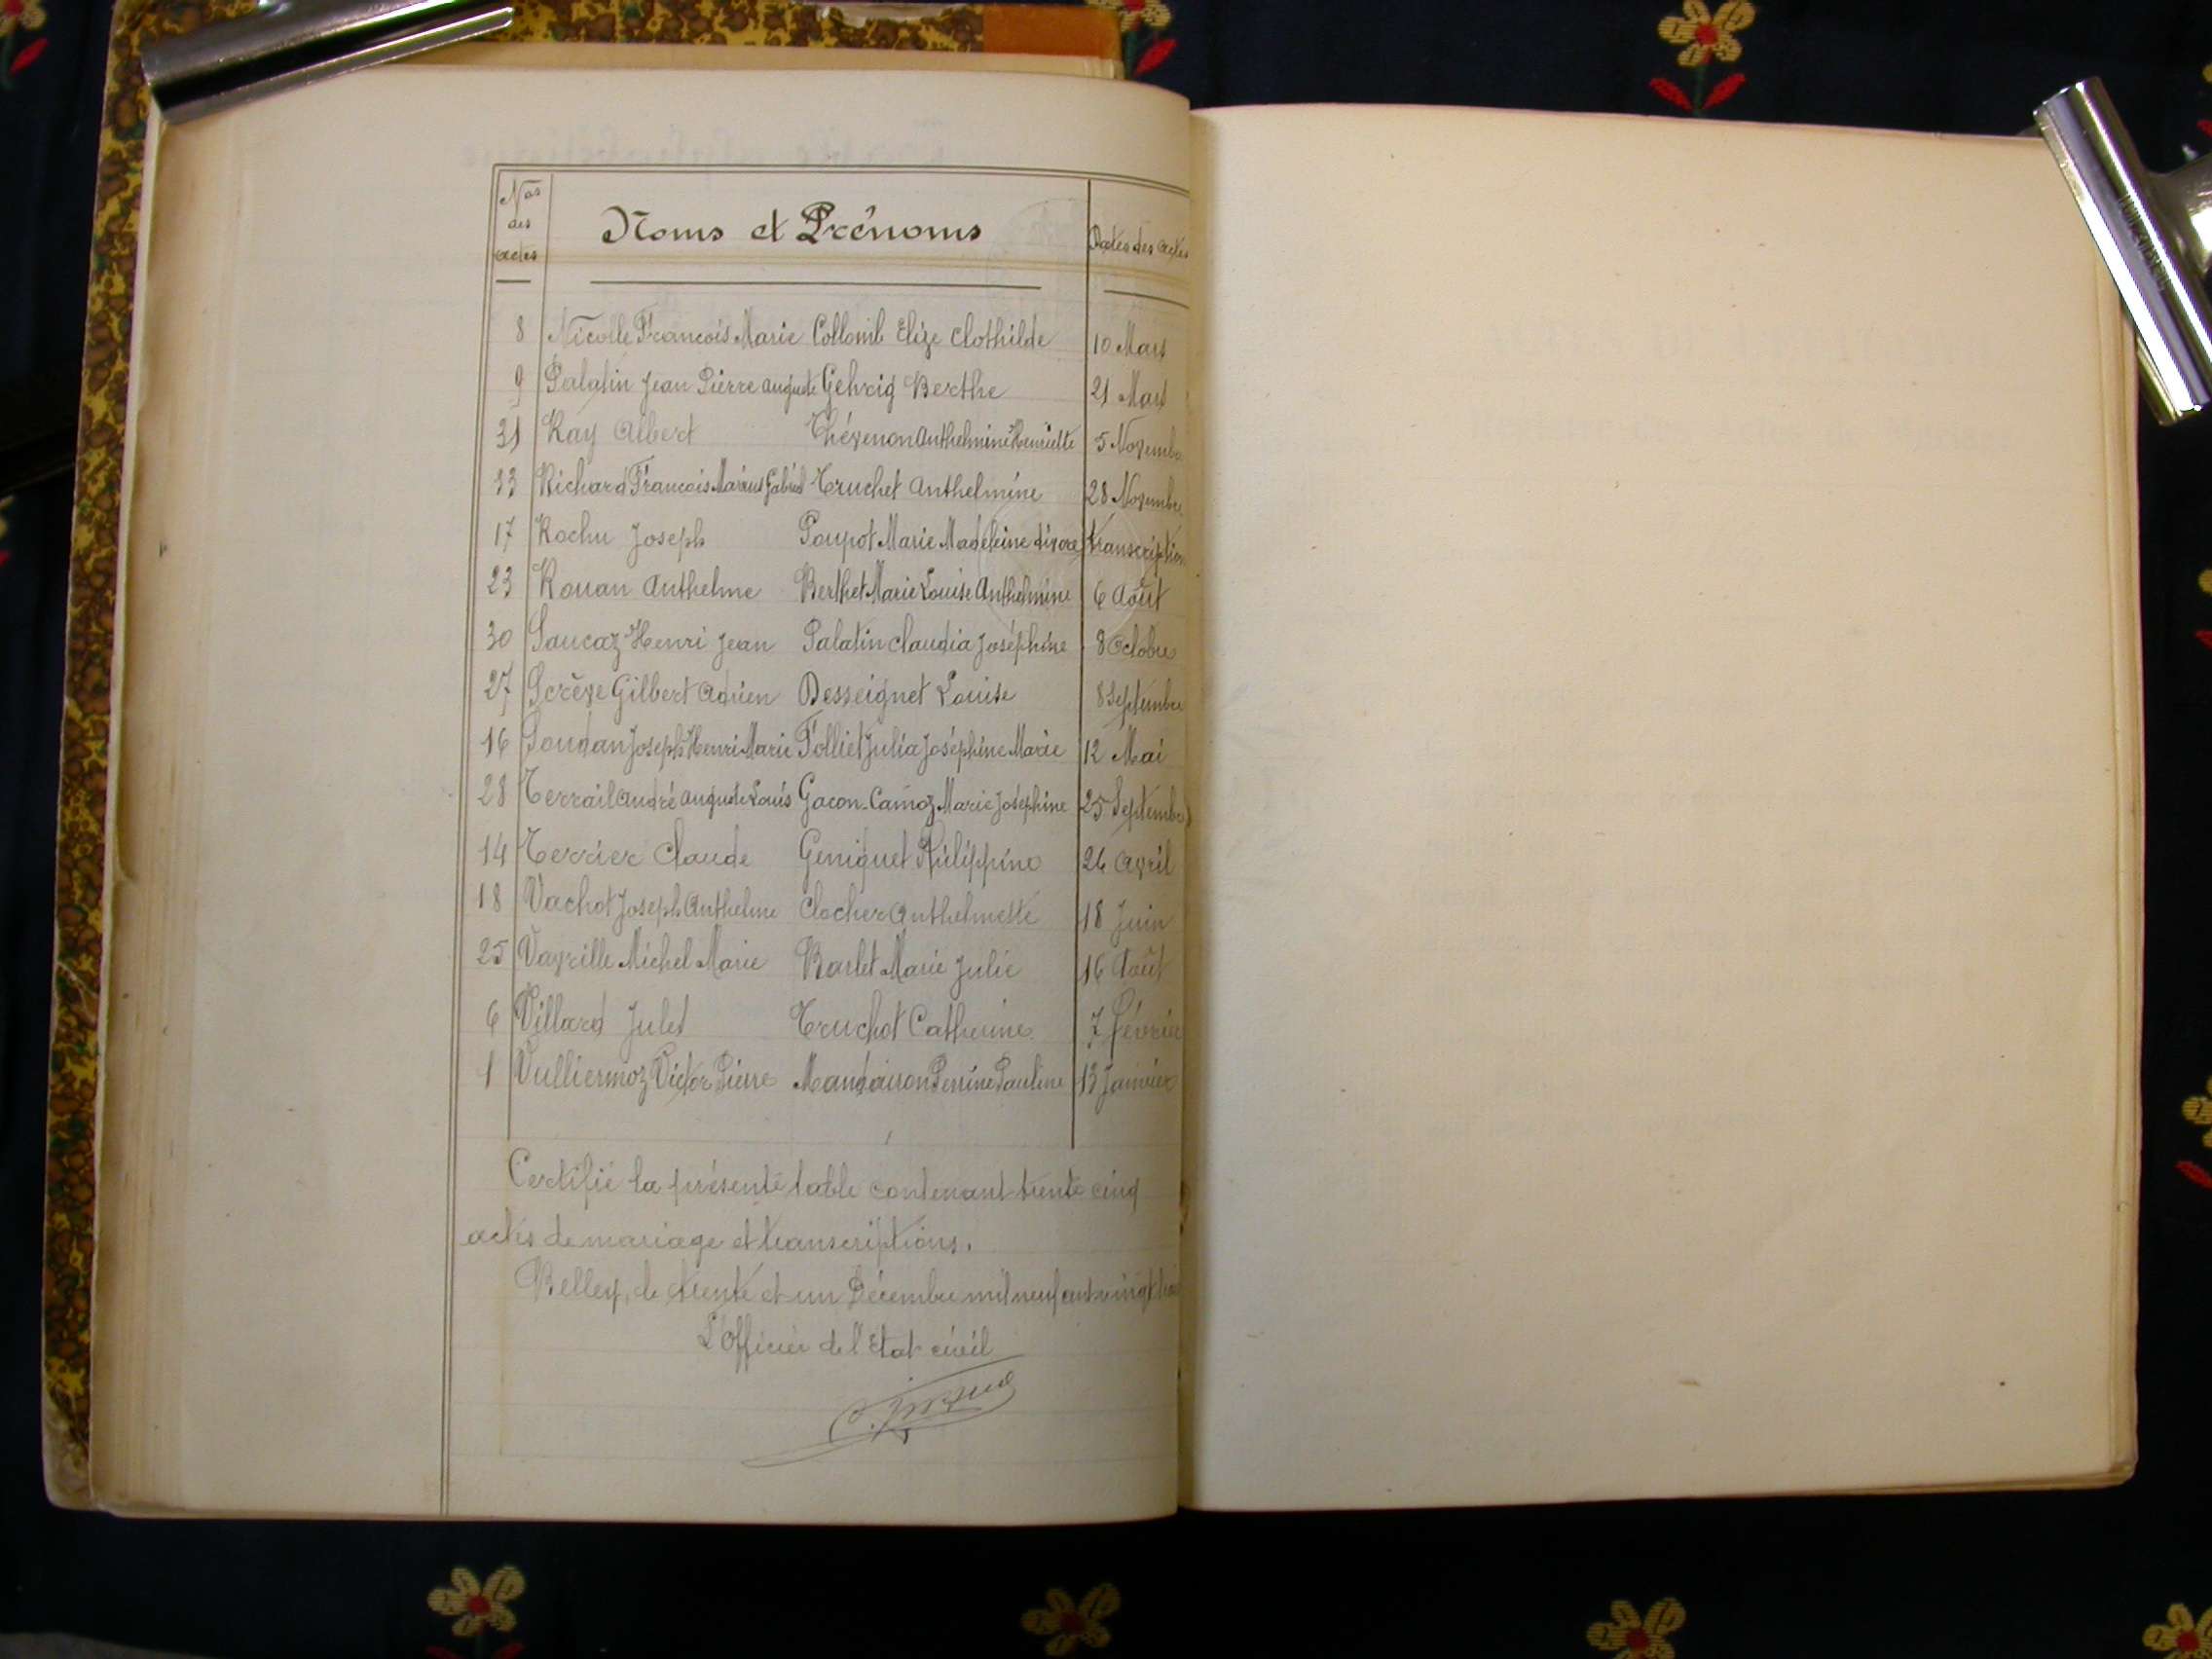 Nos des actes
Noms et Prénoms
Dates des actes
8 Nicolle François Marie Collomb Elize Clothilde 10 Mars
9 Palatin Jean Pierre Auguste Gehrig Berthe 21 Mars
31 Ray Albert Thévenon Anthelmine Henriette 5 Novembre
33 Richard François Marius Gabriel Truchet Anthelmine 28 Novembre
17 Rochu Joseph Poupot Marie Madeleine divorce transcription
23 Rouan Anthelme Berthet Marie Louise Anthelmine 6 Août
30 Saucaz Henri Jean Palatin Claudia Joséphine 8 Octobre
27 Scrève Gilbert Adrien Desseignet Louise 8 Septembre
16 Soudan Joseph Henri Marie Folliet Julia Joséphine Marie 12 Mai
28 Terrail André Auguste Louis Gacon-Camoz Marie Joséphine 25 Septembre
14 Terrier Claude Geniquet Philippine 26 Avril
18 Vachot Joseph Anthelme Clocher Anthelmette 18 Juin
25 Vayrille Michel Marie Barlet Marie Julie 16 Août
6 Villard Jules Truchot Catherine 7 Février
1 Vulliermoz Victor Pierre Mandairon Perrine Pauline 13 Janvier
Certifié la présente table contenant trente cinq
actes de mariage et transcriptions.
Belley, le trente et un Décembre mil neuf cent vingt trois
L'Officier de l'Etat civil